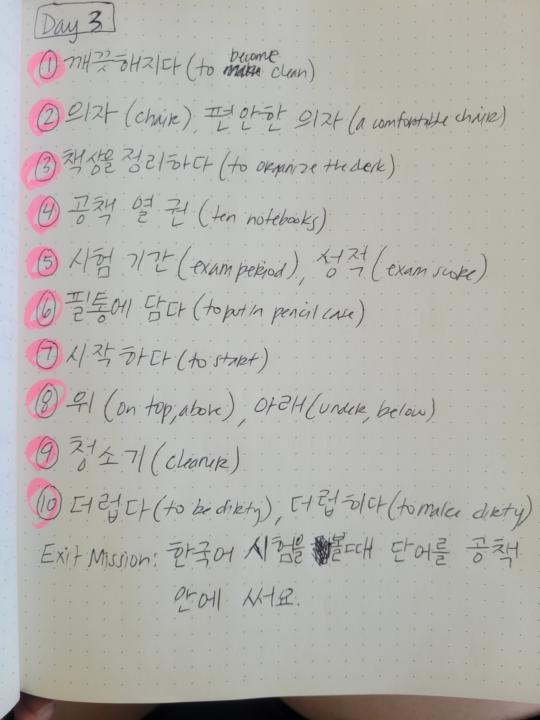 Day 3
① 깨끗해지다 (to become clean)
② 의자 (chair), 편안한 의자 (a comfortable chair)
③ 책상을 정리하다 (to organize the desk)
④ 공책 열 권 (ten notebooks)
⑤ 시험 기간 (exam period), 성적 (exam score)
⑥ 필통에 담다 (to put in pencil case)
⑦ 시작하다 (to start)
⑧ 위 (on top, above), 아래 (under, below)
⑨ 청소기 (cleaner)
⑩ 더럽다 (to be dirty), 더럽히다 (to make dirty)
Exit Mission: 한국어 시험을 볼때 단어를 공책
안에 써요.